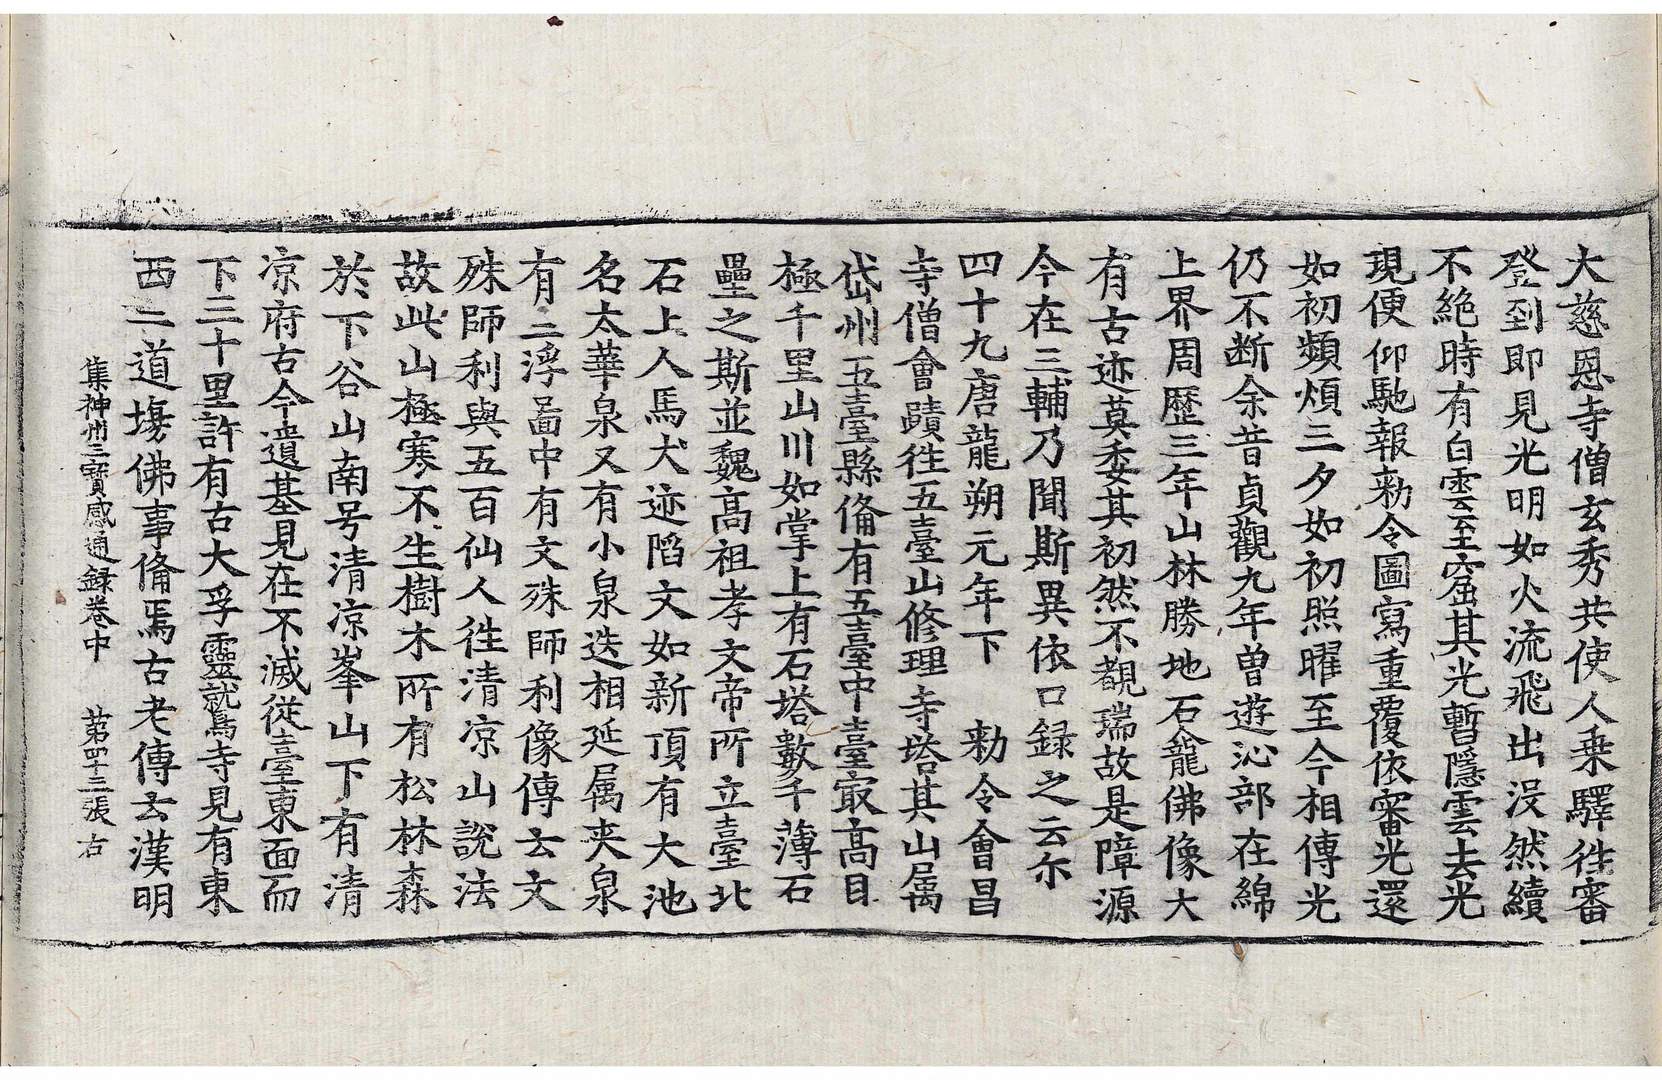 大慈恩寺僧玄秀共使人乗驛徃審
登到即見光明如火流飛出没然續
不絶時有白雲至窟其光暫隱雲去光
現便仰馳報勑令圖寫重覆依審光還
如初頻煩三夕如初照曜至今相傳光
仍不断余昔貞觀九年曽遊沁部在綿
上界周歴三年山林勝地石龕佛像大
有古迹莫委其初然不覩瑞故是障源
今在三輔乃聞斯異依口録之云尓
四十九唐龍朔元年下　勑令會昌
寺僧會賾徃五臺山修理寺塔其山属
岱州五臺縣俻有五臺中臺㝡髙目
極千里山川如掌上有石塔數千薄石
壘之斯並魏髙祖孝文帝所立臺北
石上人馬犬迹䧟文如新頂有大池
名太華泉又有小泉迭相延属夾泉
有二浮啚中有文殊師利像傳云文
殊師利與五百仙人徃清凉山說法
故此山極寒不生樹木所有松林森
於下谷山南号清凉峯山下有清
凉府古今遺基見在不滅從臺東面而
下三十里許有古大孚靈就鳥寺見有東
西二道塲佛事俻焉古老傳云漢明
集神州三寳感通録卷中　苐四十三張　右